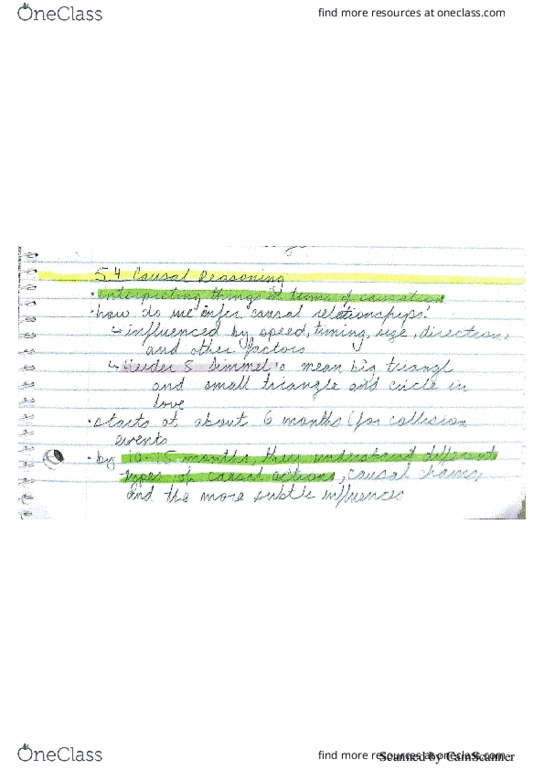 OneClass
find more resources at oneclass.com
5.4 Causal Reasoning
• interpreting things in terms of causation
• how do we infer causal relationships?
↳ influenced by speed, timing, size, direction,
and other factors
↳ Heider & Simmel's mean big triangl
and small triangle and circle in
love
• starts at about 6 months (for collision
events
• by 10-15 months they understand different
types of causal actions, causal chains,
and the more subtle influences
OneClass
find more resources at oneclass.com
Scanned by CamScanner